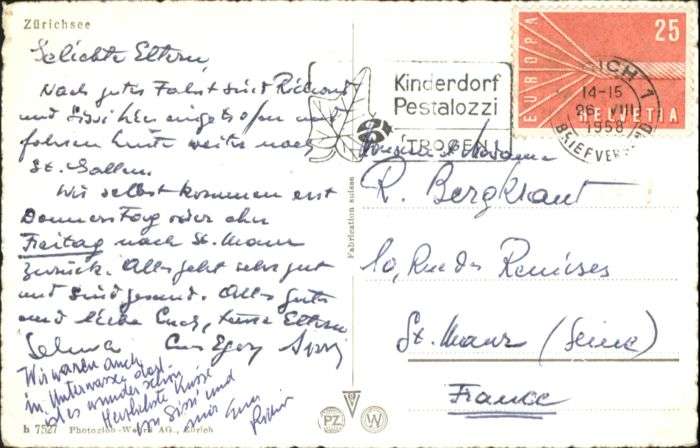 Zürichsee
Geliebte Eltern,
Nach guter Fahrt sind Richard
und Sissi hier eingetroffen und
fahren heute weiter nach
St. Gallen.
Wir selbst kommen erst
Donnerstag oder
Freitag nach St. Maur
zurück. Alles geht sehr gut
und sind gesund. Alles Gute
und liebe Euch, Eltern
Selma Egon Sissi
Wir waren auch
in Unterwasser dort
ist es wunderschön
Herzlichste Küsse
von Sissi und
h 7527 Photoglob-Wehrli AG., Zürich
Fabrication suisse
PZ W
Kinderdorf
Pestalozzi
TROGEN
EUROPA
25
HELVETIA
ZÜRICH 1
14-15
26. VIII
1958
BRIEFVERSAND
Monsieur et Madame
R. Bergkraut
10, Rue des Remises
St. Maur (Seine)
France